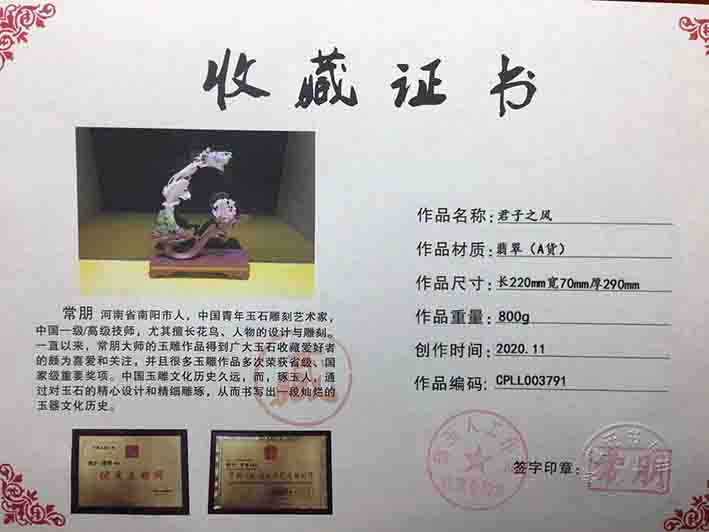 收藏证书
作品名称:君子之风
作品材质:翡翠（A货）
作品尺寸:长220mm宽70mm厚290mm
作品重量:800g
创作时间:2020.11
作品编码:CPLL003791
常朋 河南省南阳市人，中国青年玉石雕刻艺术家，
中国一级/高级技师，尤其擅长花鸟、人物的设计与雕刻。
一直以来，常朋大师的玉雕作品得到广大玉石收藏爱好者
的颇为喜爱和关注，并且很多玉雕作品多次荣获省级、国
家级重要奖项。中国玉雕文化历史久远，而，琢玉人，通
过对玉石的精心设计和精细雕琢，从而书写出一段灿烂的
玉器文化历史。
签字印章:
常朋